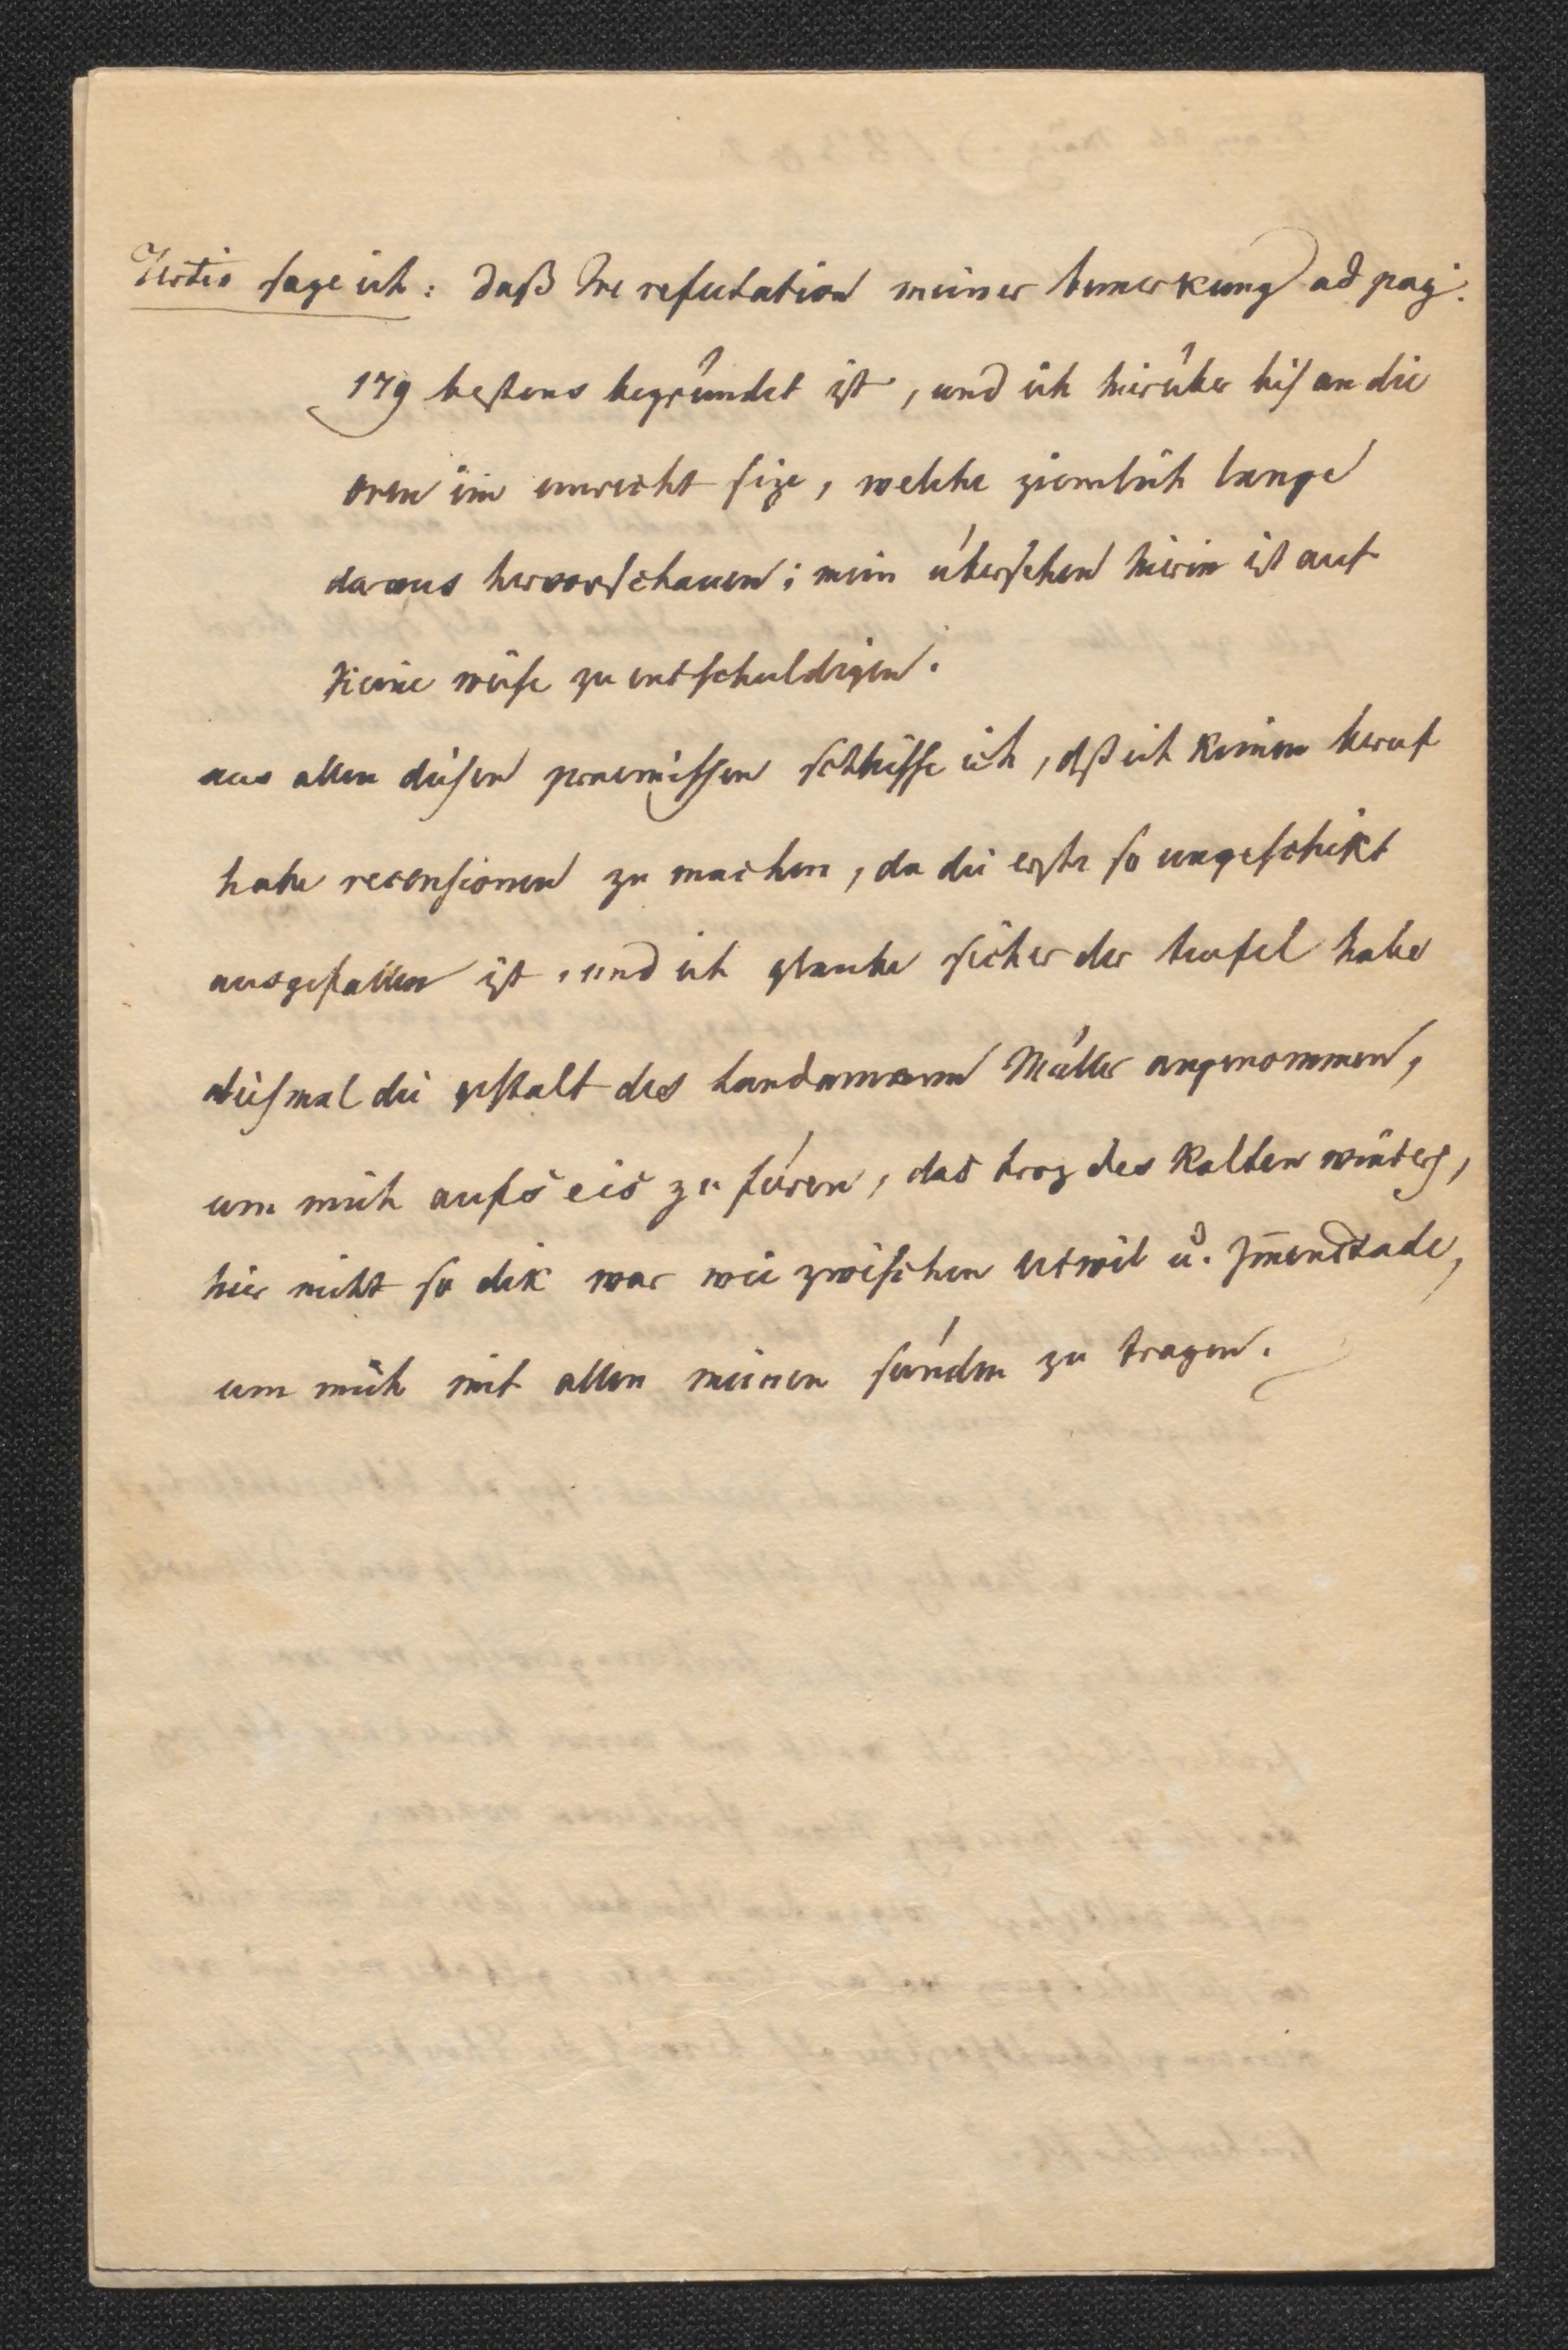 Tertio sage ich: daß Ire refutation meiner bemerkung ad pag.
179 bestens begründet ist, und ich hierüber bis an die
oren im unrecht size, welche ziemlich lange
daraus hervorschauen; mein übersehen hierin ist auf
keine weise zu entschuldigen.
aus allen diesen praemissen schliesse ich, dß ich keinen beruf
habe recensionen zu machen, da die erste so ungeschikt
ausgefallen ist, und ich glaube sicher der teufel habe
diesmal die gestalt des landammann Müller angenommen,
um mich aufs eis zu füren, das troz des kalten winters,
hier nicht so dik war wie zwischen utwil u. Im̅enstade,
um mich mit allen meinen sünden zu tragen.